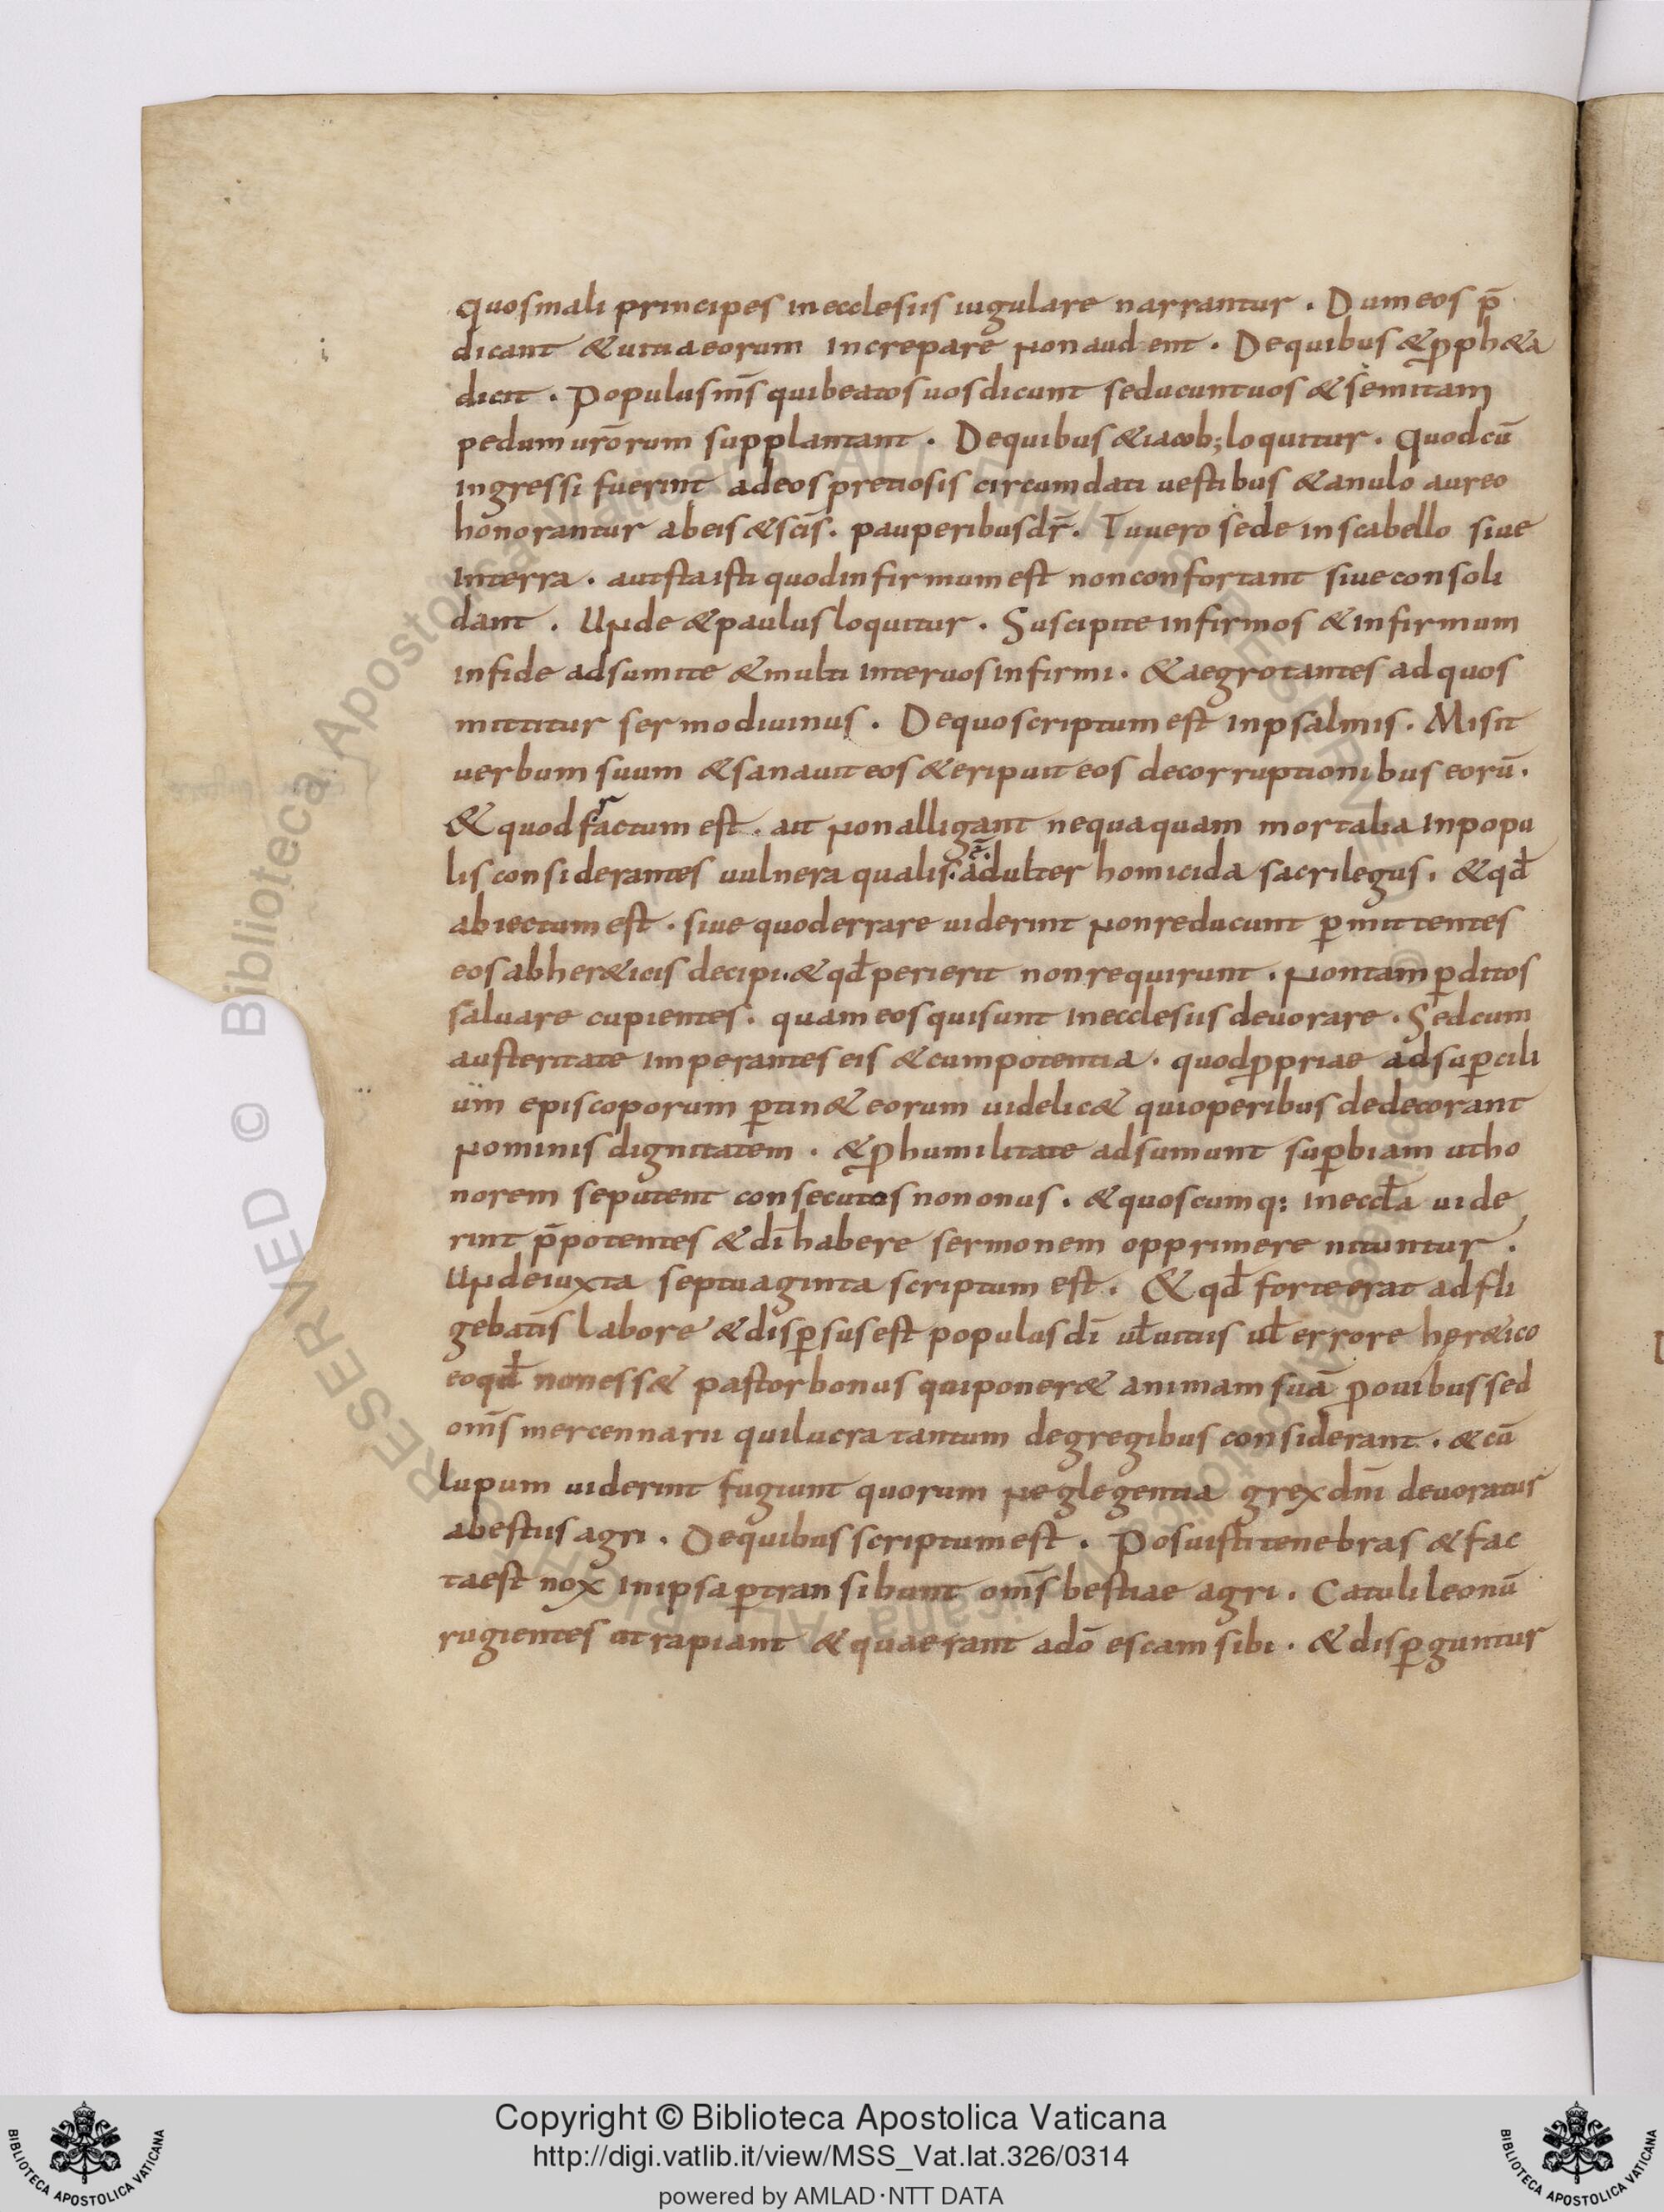 quosmali principes inecclesiis iugulare narrantur . Dumeos p̄
dicant &uitiaeorum increpare nonaudent . Dequibus &ꝓph&a
dicit . Populusm̄s quibeatos uosdicunt seducuntuos &semitam
pedum ur̄orum supplantant . Dequibus &iacob; loquitur . Quodcū
ingressi fuerint adeos pretiosis circumdati uestibus &anulo aureo
honorantur abeis &sc̄is . pauperibus dr̄ . Tuuero sede inscabello siue
interra . autstaisti quodinfirmumest nonconfortant siueconsoli
dant . Unde &paulus loquitur . Suscipite infirmos &infirmum
infide adsumite &multi interuos infirmi . &aegrotantes adquos
mittitur sermodiuinus . Dequo scriptum est inpsalmis . Misit
uerbum suum &sanauit eos &eripuit eos decorruptionibus eorū .
r
& quod factum est . ait nonalligant nequaquam mortalia inpopu
ē
lis considerantes uulnera qualis . adulter homicida sacrilegus . &qd̄
abiectum est . siue quoderrare uiderint nonreducunt ꝑmittentes
eos abher&icis decipi . &qd̄ perierit nonrequirunt . nontam ꝑditos
saluare cupientes . quam eos quisunt inecclesiis deuorare . Sedcum
austeritate imperantes eis &cumpotentia . quodꝓpriae adsuꝑcili
um episcoporum ꝑtin& eorum uidelic& quioperibus dedecorant
nominis dignitatem . &ꝓhumilitate adsumunt suꝑbiam utho
norem seputent consecutos nononus . &quoscumq: ineccl̄a uide
rint p̄potentes &dī habere sermonem opprimere nituntur .
Undeiuxta septuaginta scriptum est . & qd̄ forte erat adfli
gebatis labore &disꝑsusest populus dī ul̄uitiis ul̄ errore her&ico
eoqd̄ noness& pastorbonus quiponer& animam suā ꝓouibus sed
om̄s mercennarii quilucra tantum degregibus considerant . &cū
lupum uiderint fugiunt quorum neglegentia grex dn̄i deuoratur
abestiis agri . Dequibus scriptumest . Posuisti tenebras &fac
taest nox inipsa ꝑtransibunt om̄s bestiae agri . Catuli leonū
rugientes ut rapiant &quaerant adō escam sibi . &disꝑguntur
Copyright © Biblioteca Apostolica Vaticana
http://digi.vatlib.it/view/MSS_Vat.lat.326/0314
powered by AMLAD·NTT DATA
BIBLIOTECA APOSTOLICA VATICANA
BIBLIOTECA APOSTOLICA VATICANA